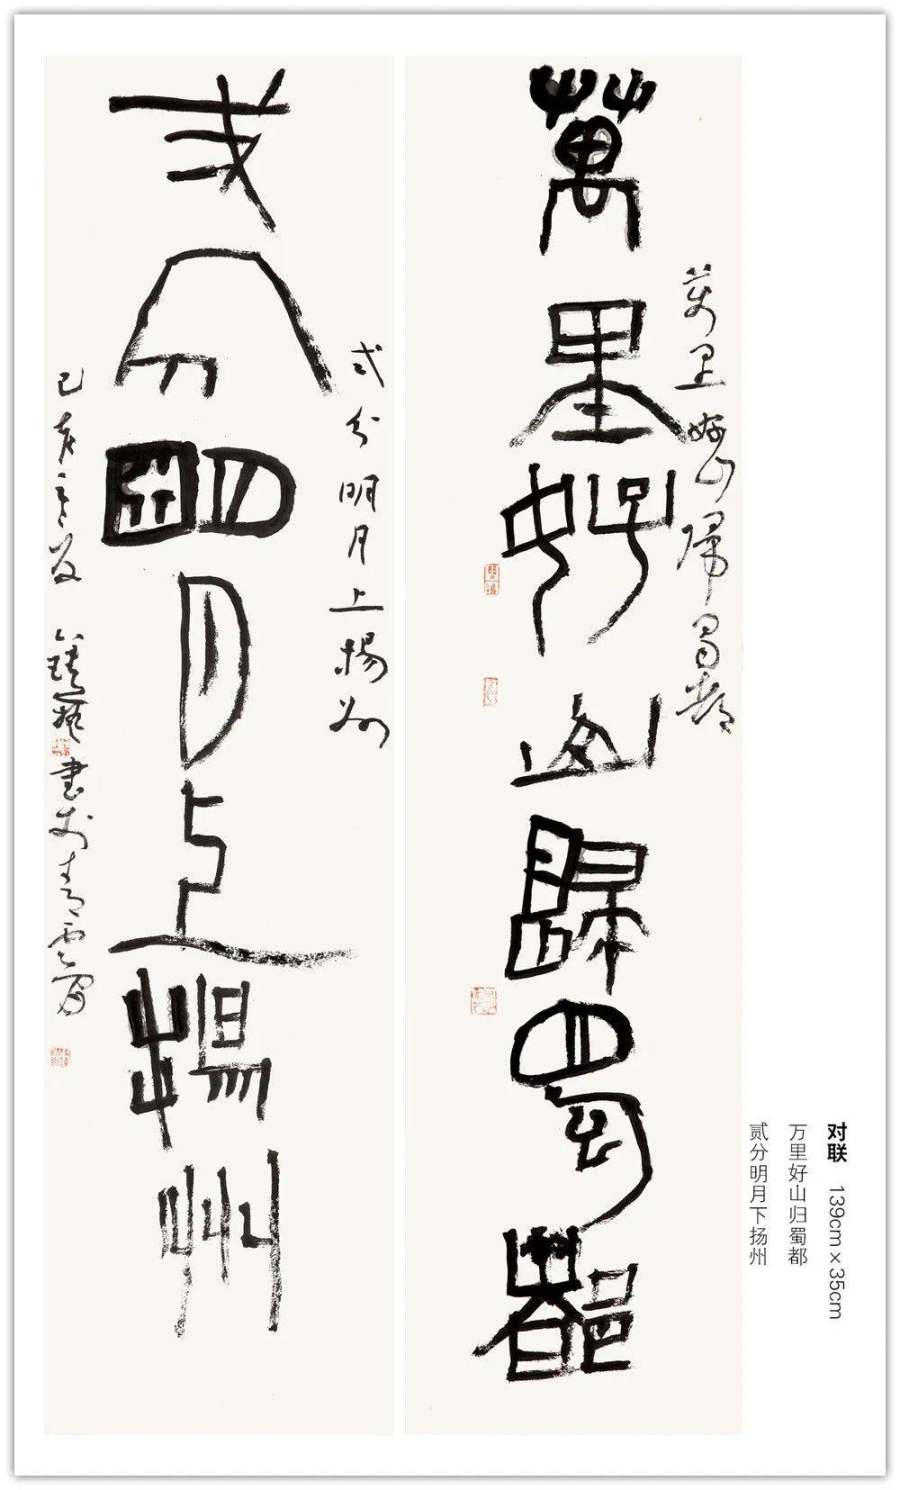 对联 139cm×35cm
万里好山归蜀都
贰分明月下扬州
萬里好山歸蜀都
萬里好山歸蜀都
弍分明月上揚州
弍分明月上揚州
己亥 書於青雲